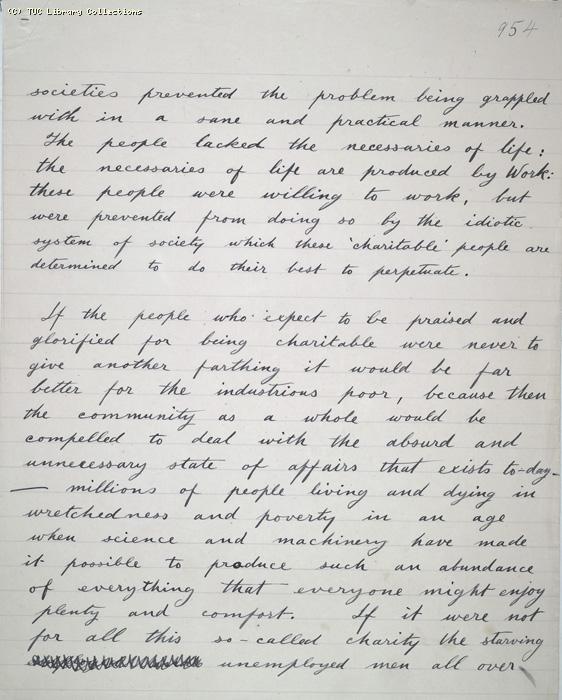 (C) TUC Library Collections
954
societies prevented the problem being grappled
with in a sane and practical manner.
The people lacked the necessaries of life:
the necessaries of life are produced by Work:
these people were willing to work, but
were prevented from doing so by the idiotic
system of society which these 'charitable' people are
determined to do their best to perpetuate.
If the people who expect to be praised and
glorified for being charitable were never to
give another farthing it would be far
better for the industrious poor, because then
the community as a whole would be
compelled to deal with the absurd and
unnecessary state of affairs that exists to-day—
— millions of people living and dying in
wretchedness and poverty in an age
when science and machinery have made
it possible to produce such an abundance
of everything that everyone might enjoy
plenty and comfort. If it were not
for all this so-called charity the starving
unemployed men all over